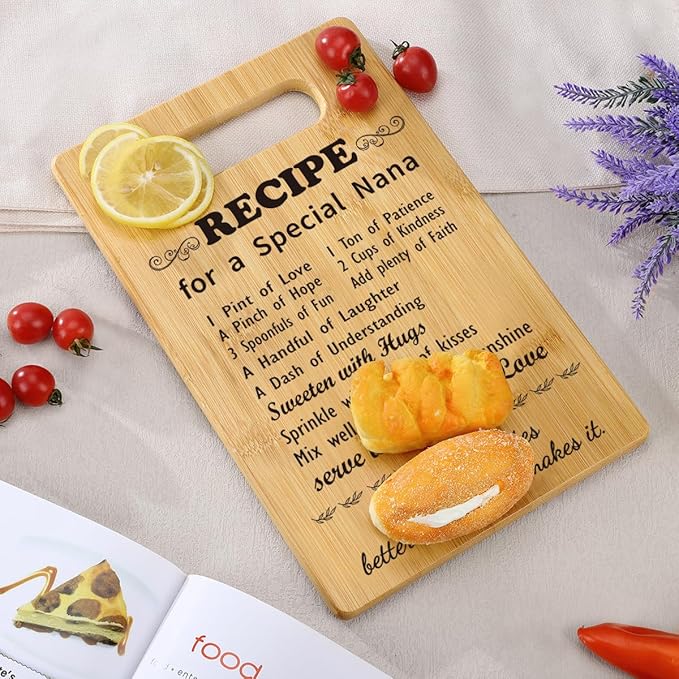 RECIPE
for a Special Nana
1 Pint of Love
1 Ton of Patience
A Pinch of Hope
2 Cups of Kindness
3 Spoonfuls of Fun
Add plenty of Faith
A Handful of Laughter
A Dash of Understanding
Sweeten with Hugs
Sprinkle of kisses
Mix well sunshine
serve Love
makes it.
better
food